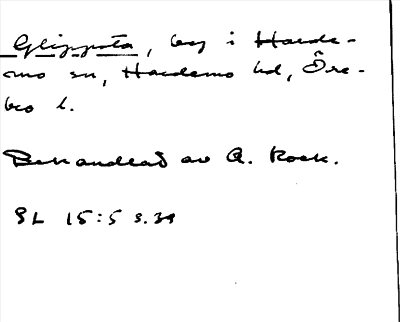 Glippsta, by i Harde-
mo sn, Hardemo hd, Öre-
bro l.
Behandlad av A. Rostk.
SL 15:5 s.39